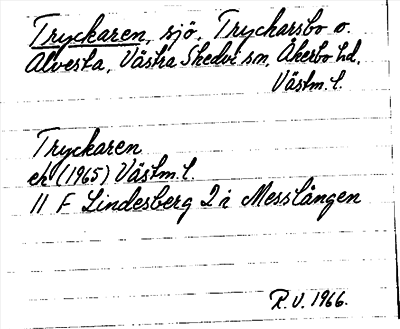 Tryckaren, sjö, Tryckarsbo o.
Alvesta, Västra Skedvi sn, Åkerbo hd,
Västm. l.
Tryckaren
ek (1965) Västm. l.
11 F Lindesberg 2 i Messlången
R.V. 1966.